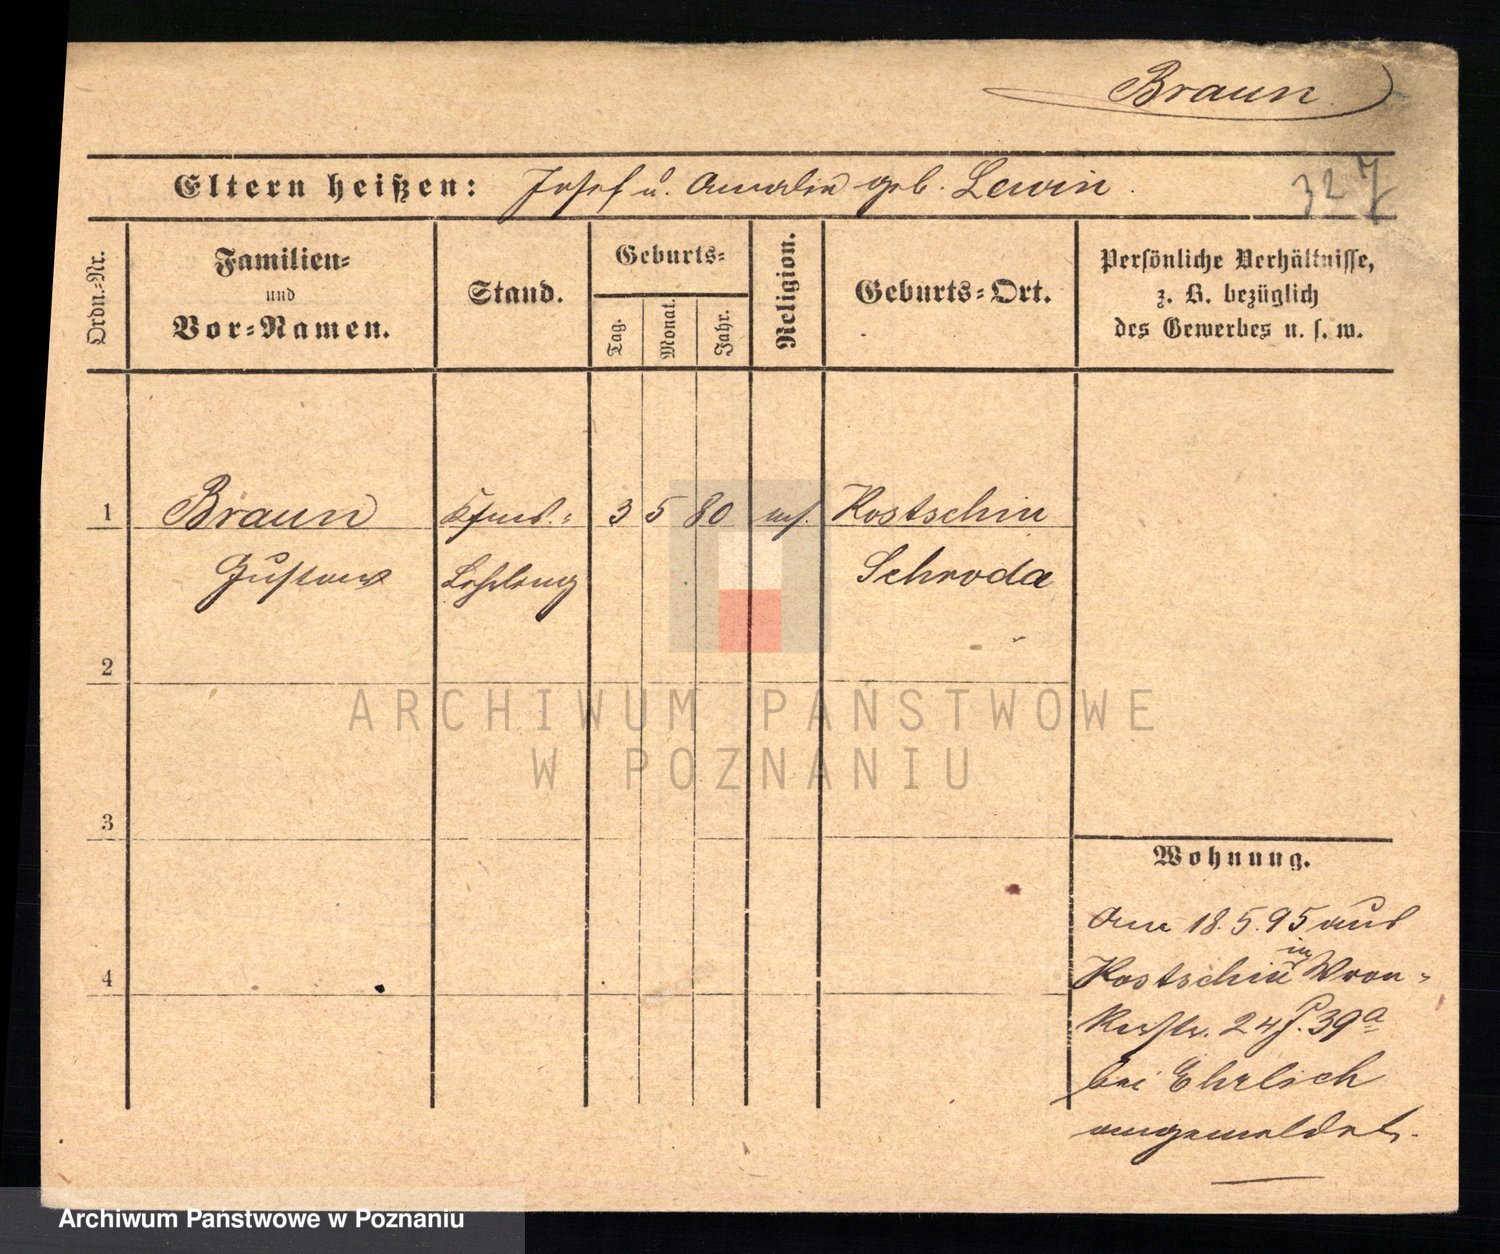 Braun
Eltern heißen: Josef u. Amalie geb. Lewin.
327
Ordn.-Nr.
Familien-
und
Vor-Namen.
Stand.
Geburts-
Tag.
Monat.
Jahr.
Religion.
Geburts-Ort.
Persönliche Verhältnisse,
z. B. bezüglich
des Gewerbes u. s. w.
1 Braun Kfm.- 3 5 80 mos. Kostschin
Gustav Lehrling Schroda
2
3
4
Wohnung.
Am 18.5.95 aus
Kostschin in Wron-
kerstr. 24 39a
bei Ehrlich
angemeldet.
ARCHIWUM PAŃSTWOWE
W POZNANIU
Archiwum Państwowe w Poznaniu